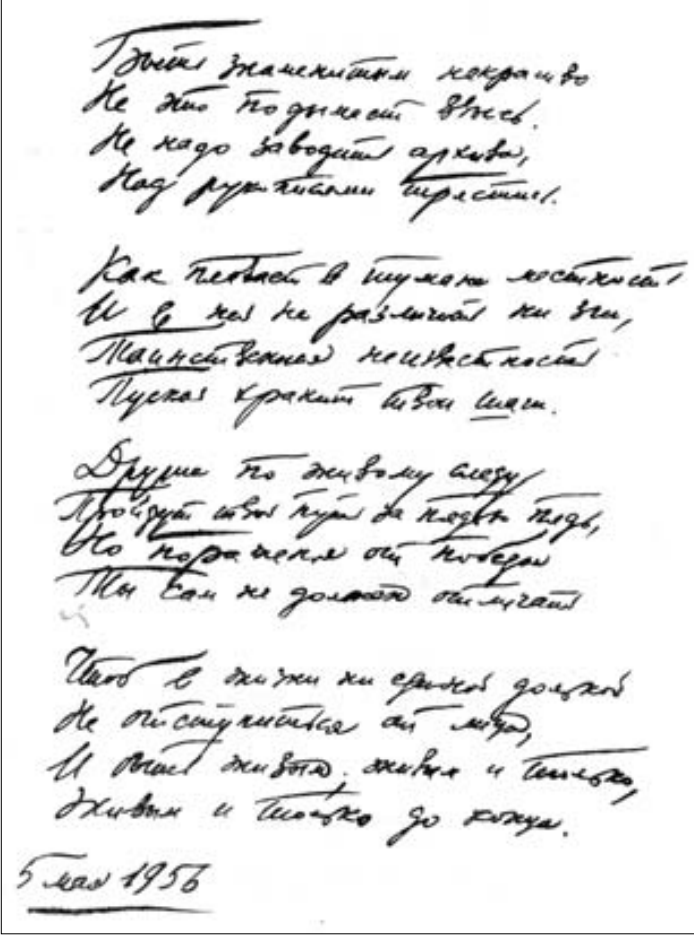 Быть знаменитым некрасиво
Не это подымает ввысь.
Не надо заводить архива,
Над рукописями трястись.
Как плавает в тумане местность
И в ней не различат ни зги,
Таинственная неизвестность
Пускай хранит твои шаги.
Другие по живому следу
Пройдут твой путь за пядью пядь,
Но пораженья от победы
Ты сам не должен отличать
Чтоб в жизни ни единой долькой
Не отступиться от лица,
И быть живым, живым и только,
Живым и только до конца.
5 мая 1956